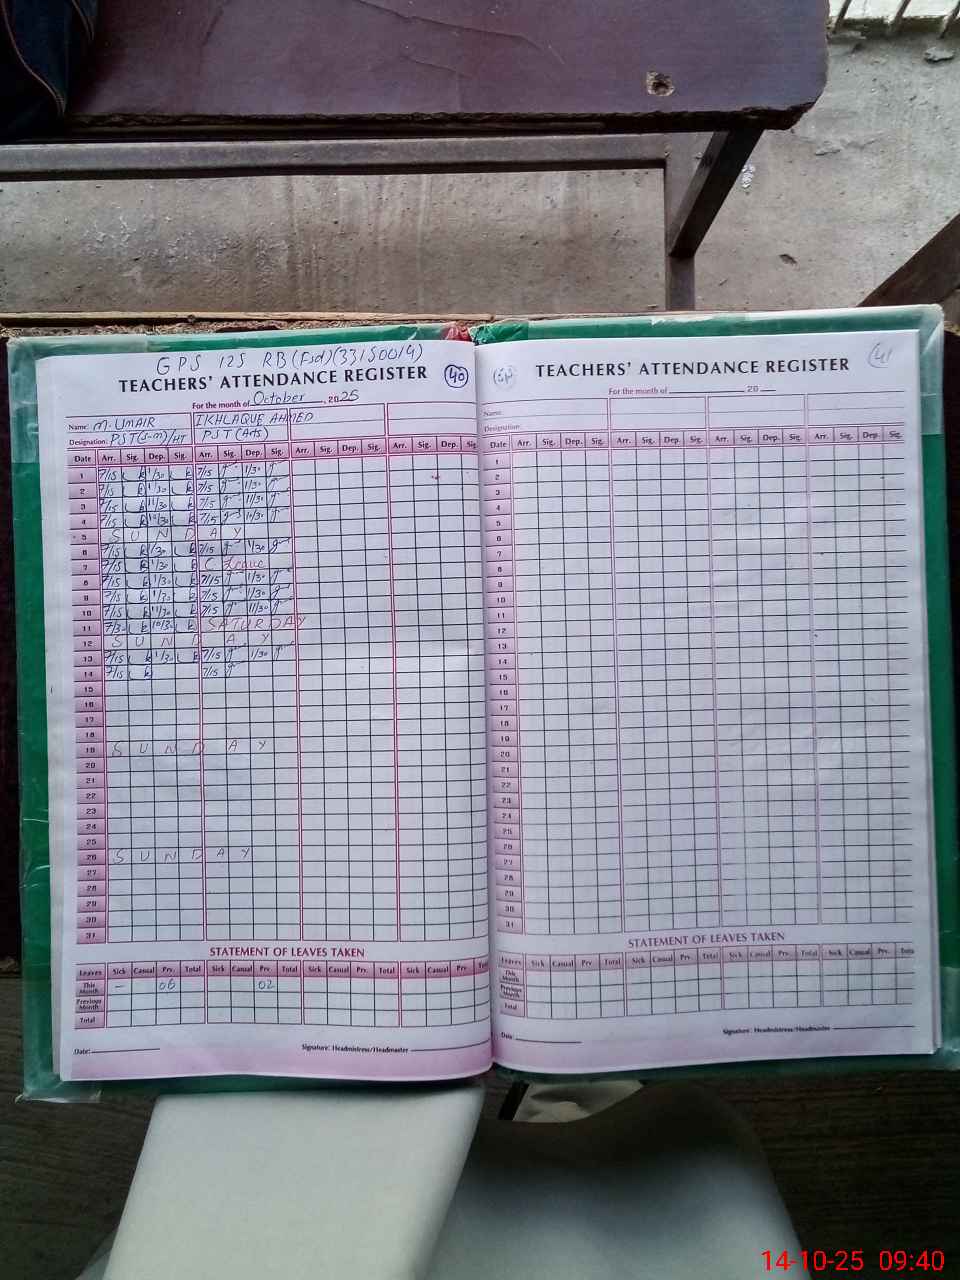 GPS 125 RB (Fsd) (33150014)
TEACHERS' ATTENDANCE REGISTER
40
For the month of October, 2025
Name: M. UMAIR IKHLAQUE AHMED
Designation: PST(S-M)/HT PST (Arts)
Date Arr. Sig. Dep. Sig. Arr. Sig. Dep. Sig. Arr. Sig. Dep. Sig. Arr. Sig. Dep. Sig.
1 7/15 1/30 7/15 1/30
2 7/15 1/30 7/15 1/30
3 7/15 11/30 7/15 11/30
4 7/15 10/30 7/15 10/30
5 SUNDAY
6 7/15 1/30 7/15 1/30
7 7/15 1/30 C Leave
8 7/15 1/30 7/15 1/30
9 7/15 1/30 7/15 1/30
10 7/15 11/30 7/15 11/30
11 7/30 10/30 SATURDAY
12 SUNDAY
13 7/15 1/30 7/15 1/30
14 7/15 7/15
15
16
17
18
19 SUNDAY
20
21
22
23
24
25
26 SUNDAY
27
28
29
30
31
STATEMENT OF LEAVES TAKEN
Leaves Sick Casual Prv. Total Sick Casual Prv. Total Sick Casual Prv. Total Sick Casual Prv. Total
This Month – 06 02
Previous Month
Total
Date: Signature: Headmistress/Headmaster
TEACHERS' ATTENDANCE REGISTER
41
For the month of 20
Name:
Designation:
Date Arr. Sig. Dep. Sig. Arr. Sig. Dep. Sig. Arr. Sig. Dep. Sig. Arr. Sig. Dep. Sig.
1
2
3
4
5
6
7
8
9
10
11
12
13
14
15
16
17
18
19
20
21
22
23
24
25
26
27
28
29
30
31
STATEMENT OF LEAVES TAKEN
Leaves Sick Casual Prv. Total Sick Casual Prv. Total Sick Casual Prv. Total Sick Casual Prv. Total
This Month
Previous Month
Total
Date: Signature: Headmistress/Headmaster
14-10-25 09:40